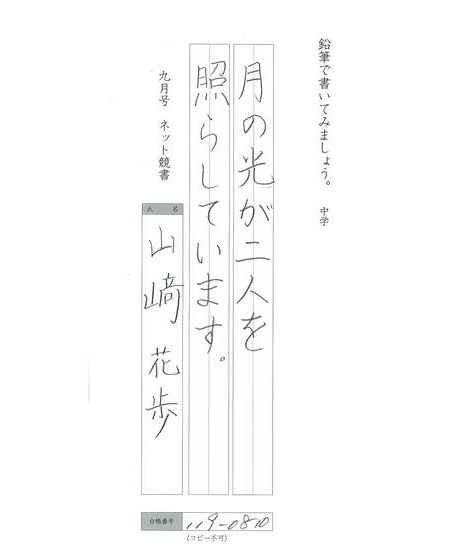 鉛筆で書いてみましょう。 中学
月の光が二人を
照らしています。
九月号 ネット競書
氏名
山﨑 花歩
台帳番号 119-0810
(コピー不可)